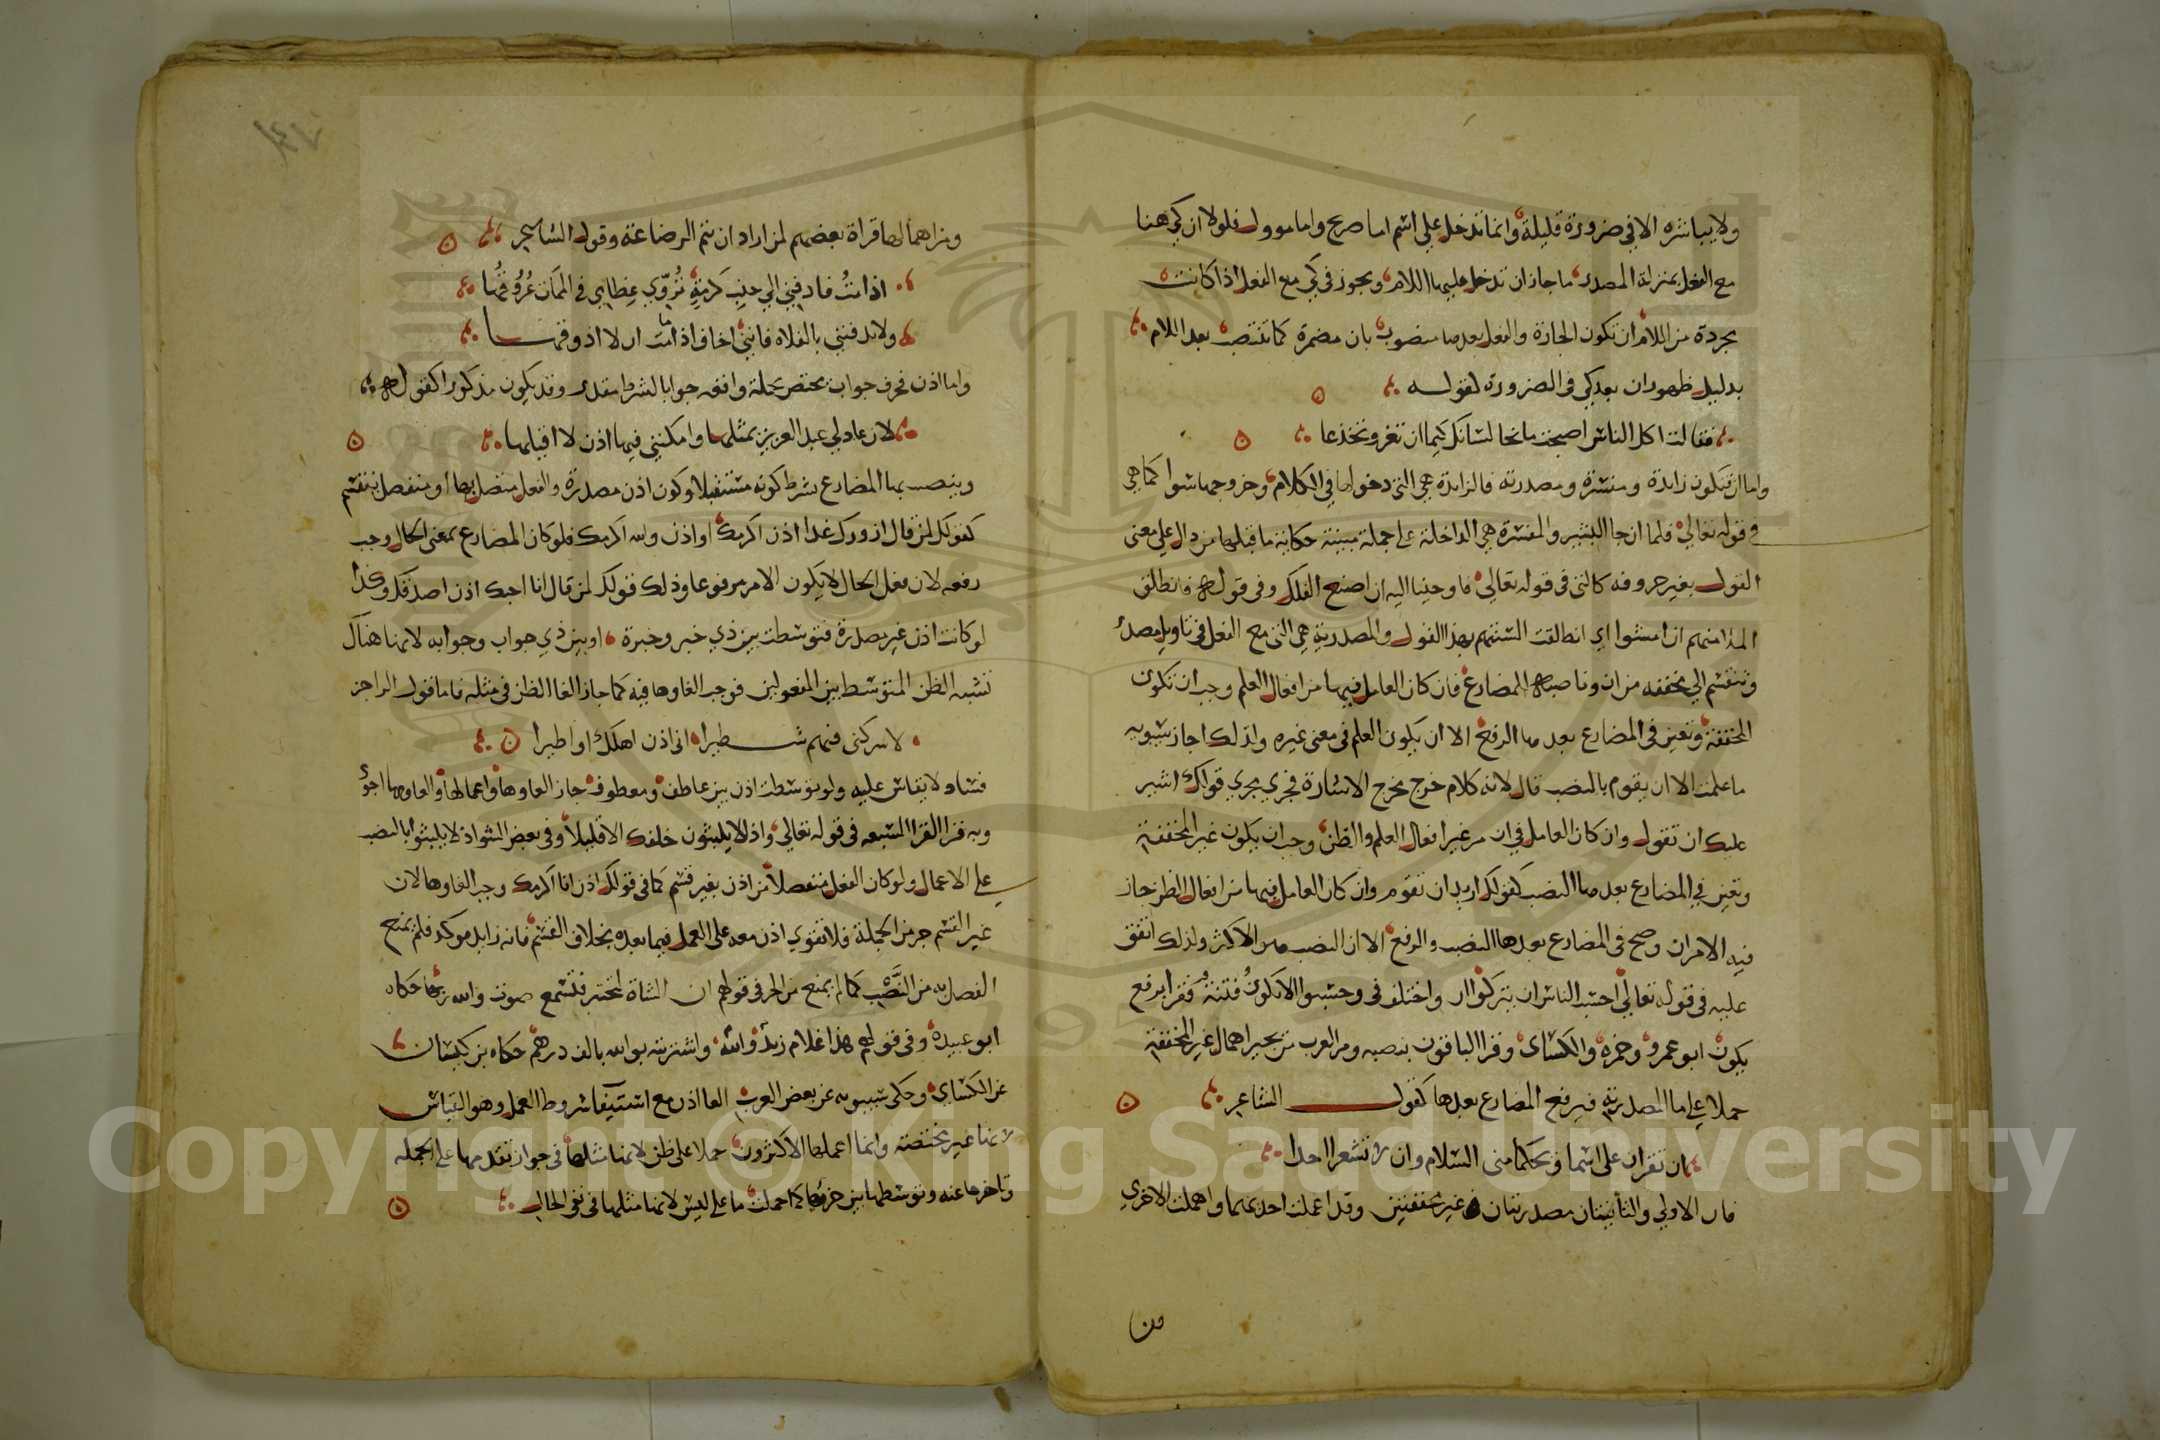 ولا يباشره الا في ضرورة قليلة وانما تدخل على اسم اما صريح واما موول فلولا ان كي هنا
مع الفعل بمنزلة المصدر ما جاز ان تدخل عليها اللام ويجوز في كي مع الفعل اذا كانت
مجردة من اللام ان تكون الجارة والفعل بعدها منصوب بان مضمرة كما تنتصب بعد اللام
بدليل ظهور ان بعد كي في الضرورة كقوله
فقالت اكل الناس اصبحت مانحا لسانك كيما ان تغر وتخدعا
واما ان فتكون زايدة ومفسرة ومصدرية فالزايدة هي التي دخولها في الكلام وخروجها سوا كما هي
في قوله تعالى فلما ان جا البشير والمفسرة هي الداخلة على جملة مبينة حكاية ما قبلها من دال على معنى
القول بغير حروفه كالتي في قوله تعالى فاوحينا اليه ان اصنع الفلك وفي قوله وانطلق
الملا منهم ان امشوا اي انطلقت السنتهم بهذا القول والمصدرية هي التي مع الفعل في تاويل مصدر
وتنقسم الى مخففه من ان وناصبة المضارع فان كان العامل فيها من افعال العلم وجب ان تكون
المخففة وتعين في المضارع بعدها الرفع الا ان يكون العلم في معنى غيره ولذلك اجاز سيبويه
ما علمت الا ان يقوم بالنصب قال لانه كلام خرج مخرج الاشارة فجرى مجرى قولك اشير
عليك ان تقول وان كان العامل في ان من غير افعال العلم والظن وجب ان يكون غير المخففة
وتعين في المضارع بعدها النصب كقولك اريد ان تقوم وان كان العامل فيها من افعال الظن جاز
فيه الامران وصح في المضارع بعدها النصب والرفع الا ان النصب هو الاكثر ولذلك اتفق
عليه في قوله تعالى احسب الناس ان يتركوا واختلف في وحسبوا الا تكون فتنة فقرا برفع
يكون ابو عمرو وحمزة والكساى وقرا الباقون بنصبه ومن العرب من يجيز اهمال غير المخففة
حملا على ما المصدرية فيرفع المضارع بعدها كقول الشاعر
ان تقران على اسما ويحكما منى السلام وان لا تشعرا احدا
فان الاولى والثانيتان مصدريتان غير مخففتين وقد اعملت احديهما واهملت الاخرى
ومن
ومن اهمالها قراة بعضهم لمن اراد ان يتم الرضاعة وقول الشاعر
اذا مت فادفني الى جنب كرمة تروي عظامي في الممات عروقها
ولا تدفنني بالفلاه فانني اخاف اذا ما مت ان لا اذوقها
واما اذن فحرف جواب يختص بجملة واقعه جوابا لشرط مقدر وقد يكون مذكورا كقوله
لان عاد لي عبد العزيز بمثلها وامكنني فيها اذن لا اقيلها
وينصب بها المضارع بشرط كونه مستقبلا وكون اذن مصدرة والفعل متصل بها او منفصل بقسم
كقولك لمن قال ازورك غدا اذن اكرمك او اذن والله اكرمك فلو كان المضارع بمعنى الحال وجب
رفعه لان فعل الحال لا يكون الا مرفوعا وذلك قولك لمن قال انا احبك اذن اصدقك وكذا
لو كانت اذن غير مصدرة فتوسطت بين ذي خبر وخبرة او بين ذي جواب وجوابه لانها هناك
تشبه الظن المتوسط بين المفعولين فوجب الغاوها فيه كما جاز الغا الظن في مثله فاما قول الراجز
لا تتركني فيهم شطيرا اني اذن اهلك او اطيرا
فشاد لا يقاس عليه ولو توسطت اذن بين عاطف ومعطوف جاز الغاوها واعمالها والغاوها اجود
وبه قرا القرا السبعه في قوله تعالى واذا لا يلبثون خلفك الا قليلا وفي بعض الشواذ لا يلبثوا بالنصب
على الاعمال ولو كان الفعل منفصلا من اذن بغير قسم كما في قولك اذن انا اكرمك وجب الغاوها لان
غير القسم جز من الجملة فلا تقوي اذن معه على العمل فيما بعده بخلاف القسم فانه زايد موكد فلم يمنع
الفصل به من النصب كما لم يمنع من الجر في قولهم ان الشاة لتجتر فتسمع صوت والله ربها حكاه
ابو عبيدة وفي قولهم هذا غلام زيد والله واشتريته بوالله بالف درهم حكاه بن كيسان
عن الكساي وحكى سيبويه عن بعض العرب الغا اذن مع استيفا شروط العمل وهو القياس
لانها غير مختصة وانما اعملها الاكثرون حملا على ظن لانها مثلها في جواز تقدمها على الجمله
وتاخرها عنه وتوسطها بين جزءيها كما حملت ما على ليس لانها مثلها في نفي الحال
Copyright © King Saud University